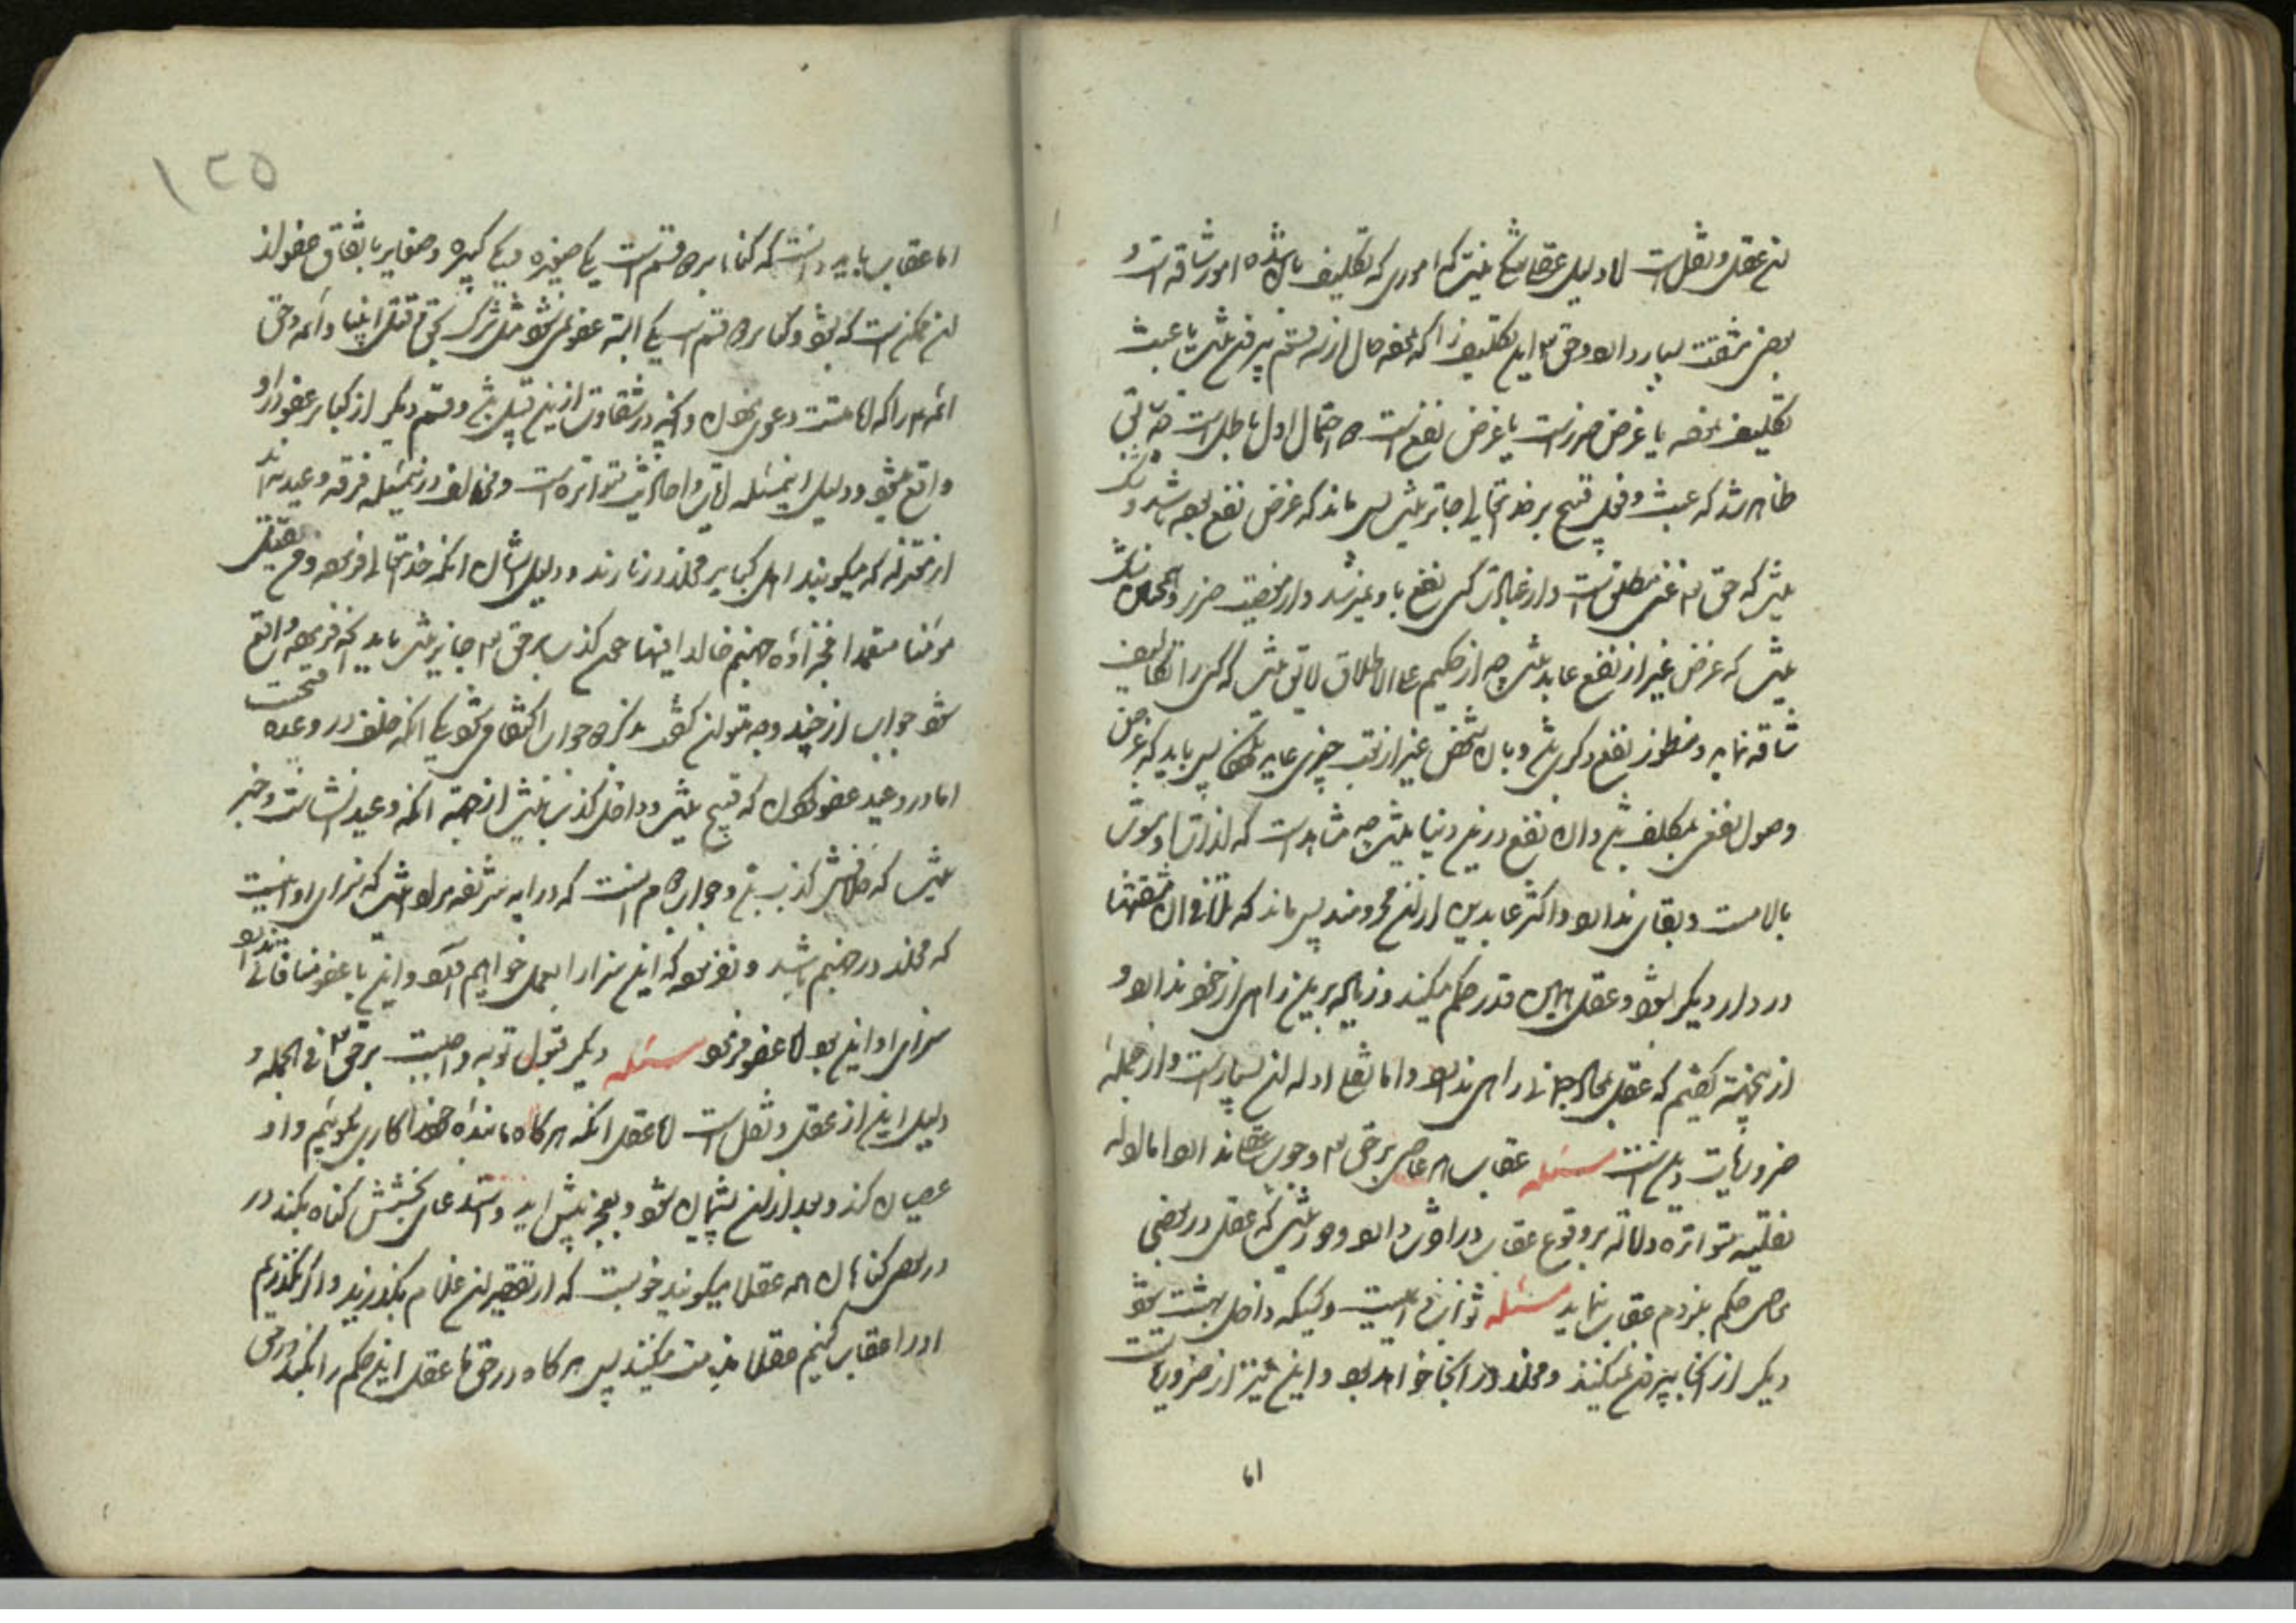 عقل و نقل است اما دلیل عقلی که اموری که تکلیف بآن شده امور شاقه است و
بعضی مشقت بسیار دارد و حق این تکلیف را که کرده حال از سه قسم بیرون نیست یا عبث
تکلیف کرده یا غرض ضرر است یا غرض نفع است دو احتمال اول باطل است چه
ظاهر شد که عبث و فعل قبیح بر خدایتعالی جایز نیست پس ماند که غرض نفع بوده باشد و
نیست که حق غنی مطلق است و از عبادت کسی نفع باو نمیرسد و از معصیت ضرر و
نیست که غرض غیر از نفع عابد چه از حکیم علی الاطلاق لایق نیست که کسی را تکالیف
شاقه نماید و منظور نفع دیگری و بآن شخص غیر از تعب چیزی عاید پس باید که غرض
وصول نفعی بمکلف و آن نفع در این دنیا نیست چه مشاهد است که لذات
و بقای ندارد و اکثر عابدین از آن محرومند پس ماند که تلافی آن مشقتها
در دار دیگر بشود و عقل همین قدر حکم میکند و زیاده بر این راهی از خود ندارد و
از اینجهت گفتیم که عقل بمعاد جسمانی راهی ندارد و اما نقل ادله آن بسیار است و از جمله
ضروریات دین است مسئله عقاب هر عاصی بر حق وجوب ندارد اما ادله
نقلیه متواتره دلالت بر وقوع عقاب در او دارد و دور نیست که عقل در بعضی
معاصی حکم بلزوم عقاب نماید مسئله ثواب دایمیست و کسیکه داخل بهشت
دیگر از آنجا بیرون نمیکنند و مخلد در آنجا خواهد بود و این نیز از ضروریات
اما
۱۲۵
اما عقاب باید دانست که گناه بر دو قسم است یکی صغیره و یکی کبیره و صغایر باتفاق عفو از
آن ممکن است که بشود و کبایر دو قسم است یکی البته عفو نمیشود مثل شرک بحق و قتل انبیا و ائمه و حق
ائمه را که امامتست دعوی نمودن و آنچه در شقاوت از این قبیل و قسم دیگر از کبایر عفو از او
واقع میشود و دلیل این مسئله آیات و احادیث متواتره است و مخالف در این مسئله فرقه وعیدیه‌اند
از معتزله که میگویند اهل کبایر مخلد در نارند و دلیل ایشان آنکه خدایتعالی فرموده و من یقتل
مؤمنا متعمدا فجزاؤه جهنم خالدا فیها چون کذب بر حق جایز نیست باید که فرموده واقع
شود جواب از چند وجه میتوان گفت بذکر دو جواب اکتفا میشود یکی آنکه خلف در وعده قبیح است
اما در وعید عفو نمودن که قبیح نیست و داخل کذب نیست از جهة آنکه وعید انشا است و خبر
نیست که خلافش کذب و جواب دوم آنست که در آیه شریفه مراد که سزای او اینست
که مخلد در جهنم باشد و نفرموده که این سزا را بعمل خواهیم آورد و این با عفو منافات ندارد
سزای او این بود اما عفو فرمود مسئله دیگر قبول توبه واجبست بر حق فی الجمله و
دلیل این از عقل و نقل است اما عقل آنکه هرگاه ما بنده خود را کاری بگوئیم و او
عصیان کند و بعد از آن پشیمان شود و بعجز پیش آید و استدعای بخشش گناه بکند در
در بعضی گناهان همه عقلا میگویند خوبست که از تقصیر آن غلام بگذرند و اگر نگذریم
او را عقاب کنیم عقلا مذمت میکنند پس هرگاه در حق ما عقل این حکم را بکند در حق